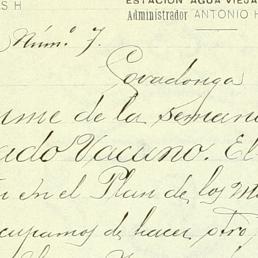 ESTACIÓN AGUA VIEJA
Administrador ANTONIO H
Núm.° 7.
Covadonga
de la semana
ado Vacuno. El
en el Plan de los M
cupamos de hacer otro